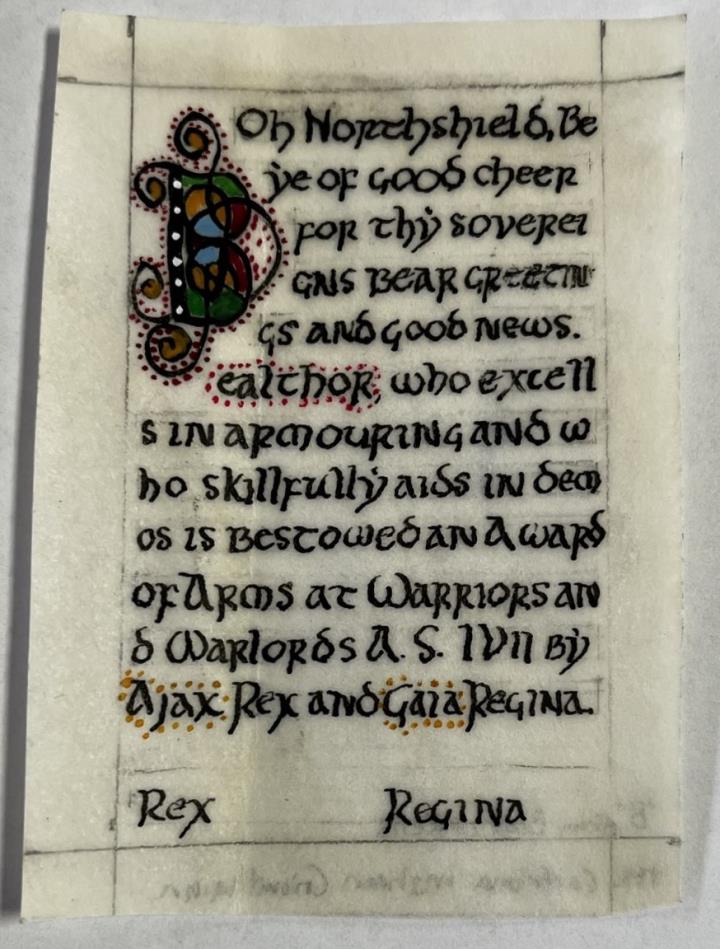 Oh Northshield, Be
ye of good cheer
for thy soverei
gns bear greetin
gs and good news.
Bealthor, who excell
s in armouring and w
ho skillfully aids in dem
os is bestowed an Award
of Arms at Warriors an
d Warlords A. S. LVII by
Ajax Rex and Gaia Regina.
Rex Regina